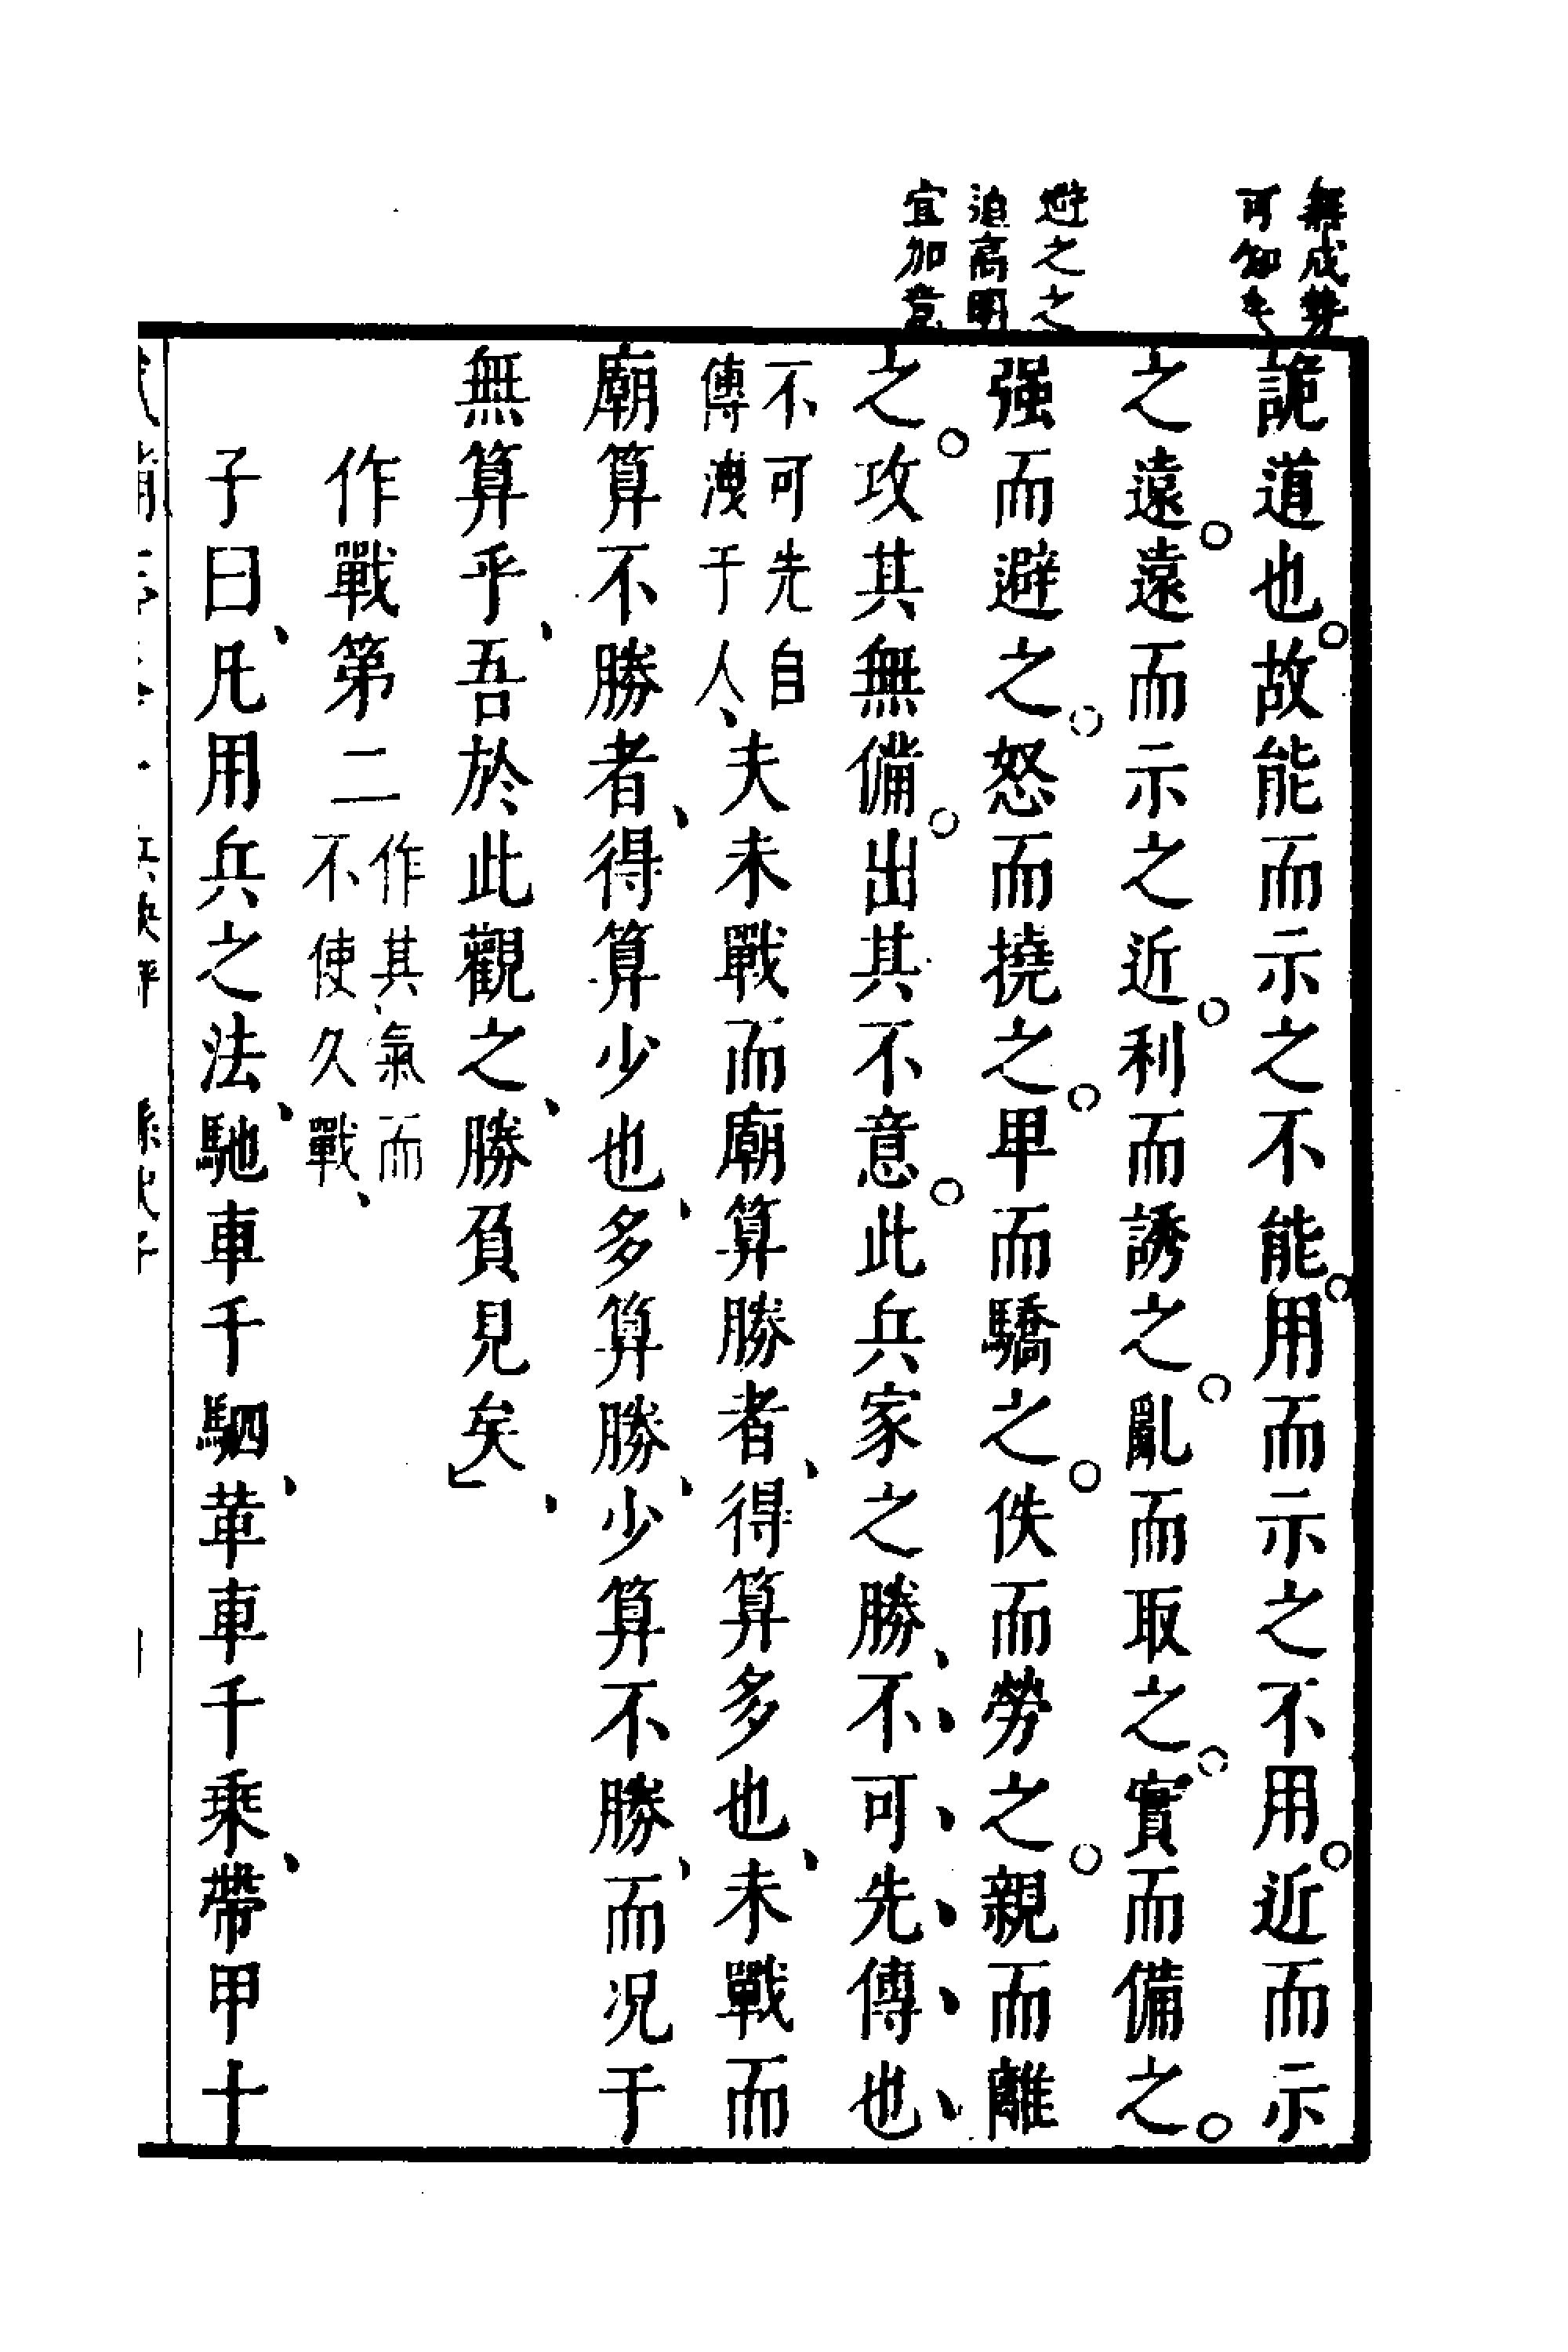 無成勢
可知矣
避之之
道高明
宜加意
詭道也。故能而示之不能。用而示之不用。近而示
之遠。遠而示之近。利而誘之。亂而取之。實而備之。
强而避之。怒而撓之。卑而驕之。佚而勞之。親而離
之。攻其無備。出其不意。此兵家之勝、不可先傳也、
不可先自
傳洩于人、
夫未戰而廟算勝者、得算多也、未戰而
廟算不勝者、得算少也、多算勝、少算不勝、而况于
無算乎、吾於此觀之、勝負見矣」、
作戰第二
作其氣而
不使久戰、
子曰、凡用兵之法、馳車千駟、革車千乘、帶甲十